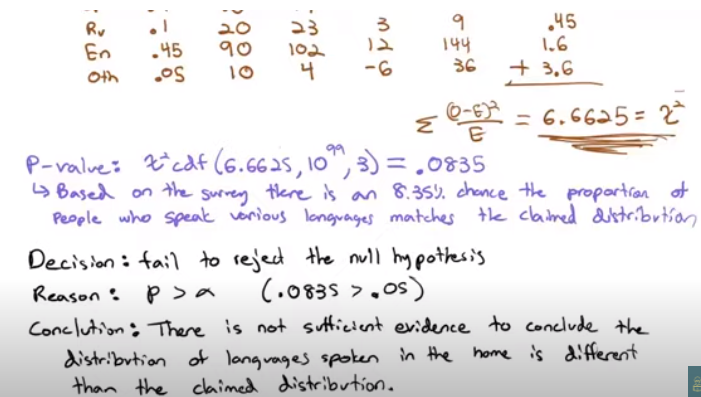 Rv .1 20 23 3 9 .45
En .45 90 102 12 144 1.6
Oth .05 10 4 -6 36 + 3.6
Σ (O-E)²/E = 6.6625 = χ²
P-value: χ²cdf (6.6625, 10⁹⁹, 3) = .0835
↳ Based on the survey there is an 8.35% chance the proportion of
people who speak various languages matches the claimed distribution
Decision: fail to reject the null hypothesis
Reason: P > α (.0835 > .05)
Conclution: There is not sufficient evidence to conclude the
distribution of languages spoken in the home is different
than the claimed distribution.